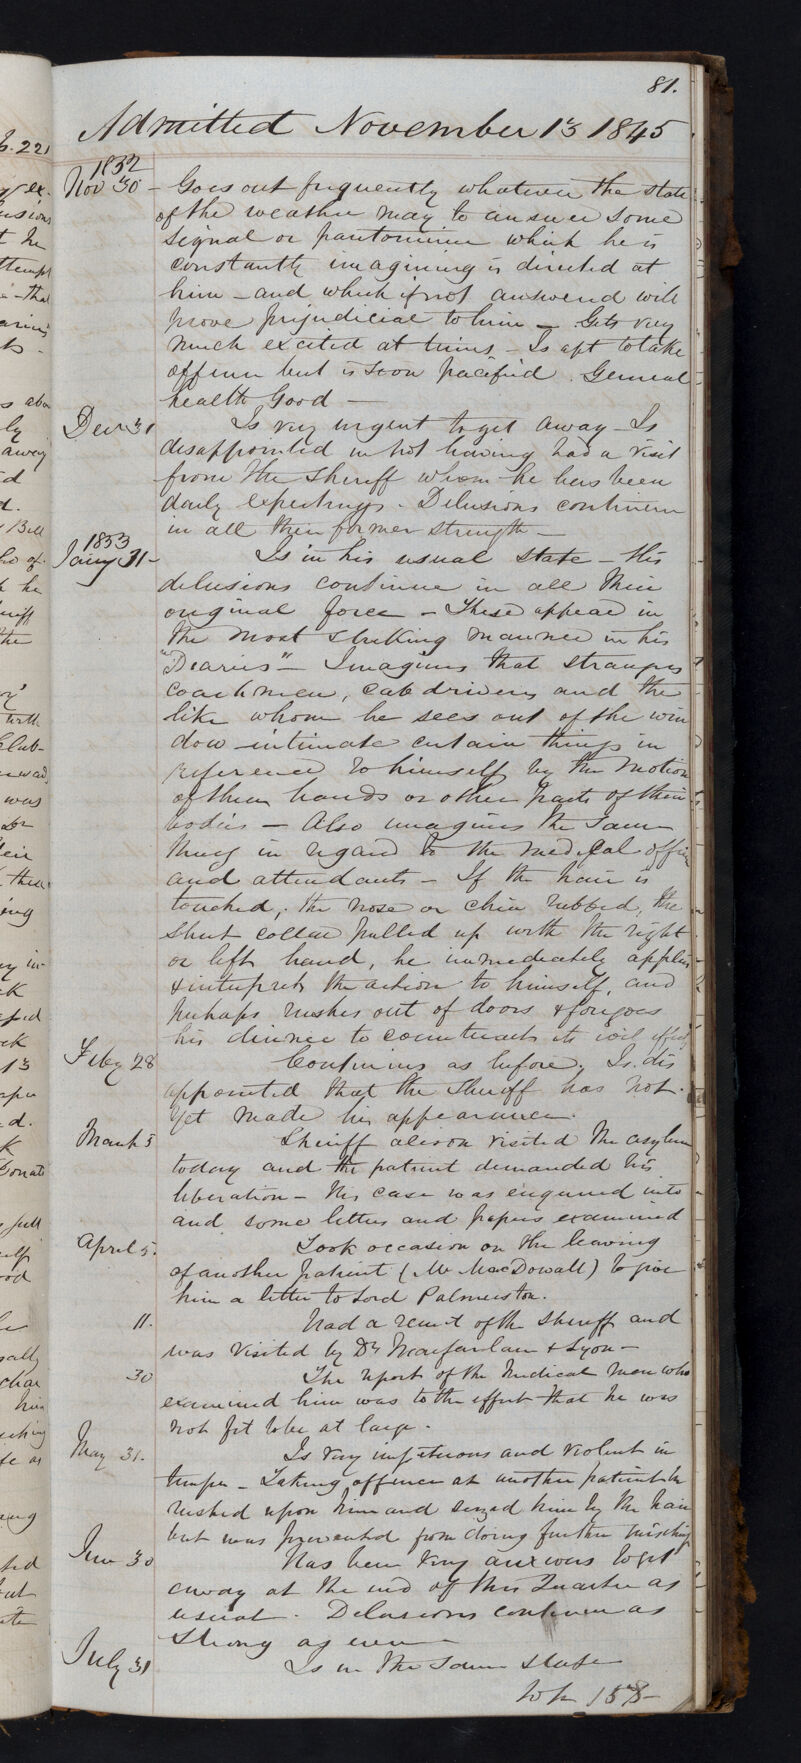 81.
Admitted November 13 1845
1852
Nov 30 - Goes out frequently whatever the state
of the weather may be to answer some
signal or pantomime which he is
constantly imagining is directed at
him - and which if not answered will
prove prejudicial to him - Gets very
much excited at times - Is apt to take
offence but is soon pacified. General
health Good -
Decr 31 Is very urgent to get away - Is
disappointed in not having had a visit
from the Sheriff whom he has been
daily expecting. Delusions continue
in all their former strength -
1853
Jany 31 - Is in his usual state - His
delusions continue in all their
original force - These appear in
the most striking manner in his
"Diaries" - Imagines that strangers
coachmen, cab drivers and the
like whom he sees out of the win
dow intimate certain things in
reference to himself by the motion
of their hands or other parts of their
bodies - Also imagines the same
thing in regard to the medical officers
and attendants - If the hair is
touched, the nose or chin rubbed, the
shirt collar pulled up with the right
or left hand, he immediately applies
& interprets the action to himself, and
perhaps rushes out of doors & forgoes
his dinner to counteract its evil effects
Feby 28 Continues as before. Is dis
appointed that the Sheriff has not
yet made his appearance.
March 5 Sheriff Alison visited the asylum
today and the patient demanded his
liberation - His case was enquired into
and some letters and papers examined
April 5. Took occasion on the leaving
of another patient (Mr MacDowall) to give
him a letter to Lord Palmerston.
11. Had a remit of the Sheriff and
was visited by Drs Macfarlane & Lyon -
30 The report of the medical men who
examined him was to the effect that he was
not fit to be at large.
May 31. Is very impetuous and violent in
temper - Taking offence at another patient he
rushed upon him and seized him by the hair
but was prevented from doing further mischief
June 30 Has been very anxious to get
away at the end of this Quarter as
usual. Delusions continue as
strong as ever -
July 31 Is in the same state
to p 158 -